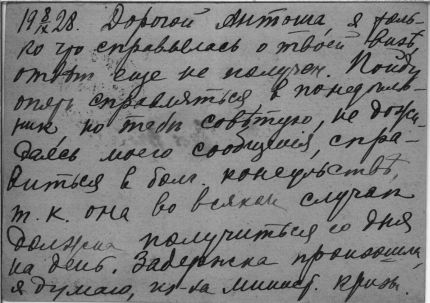 19 8/IX 28. Дорогой Антоша, я толь-
ко что справлялась о твоей визѣ,
отвѣт еще не получен. Пойду
опять справляться в понедѣль-
ник, но тебѣ совѣтую, не дожи-
даясь моего сообщенія, спра-
виться в болг. консульствѣ,
т. к. она во всяком случаѣ
должна получиться со дня
на день. Задержка произошла,
я думаю, из-за минист. кризи.